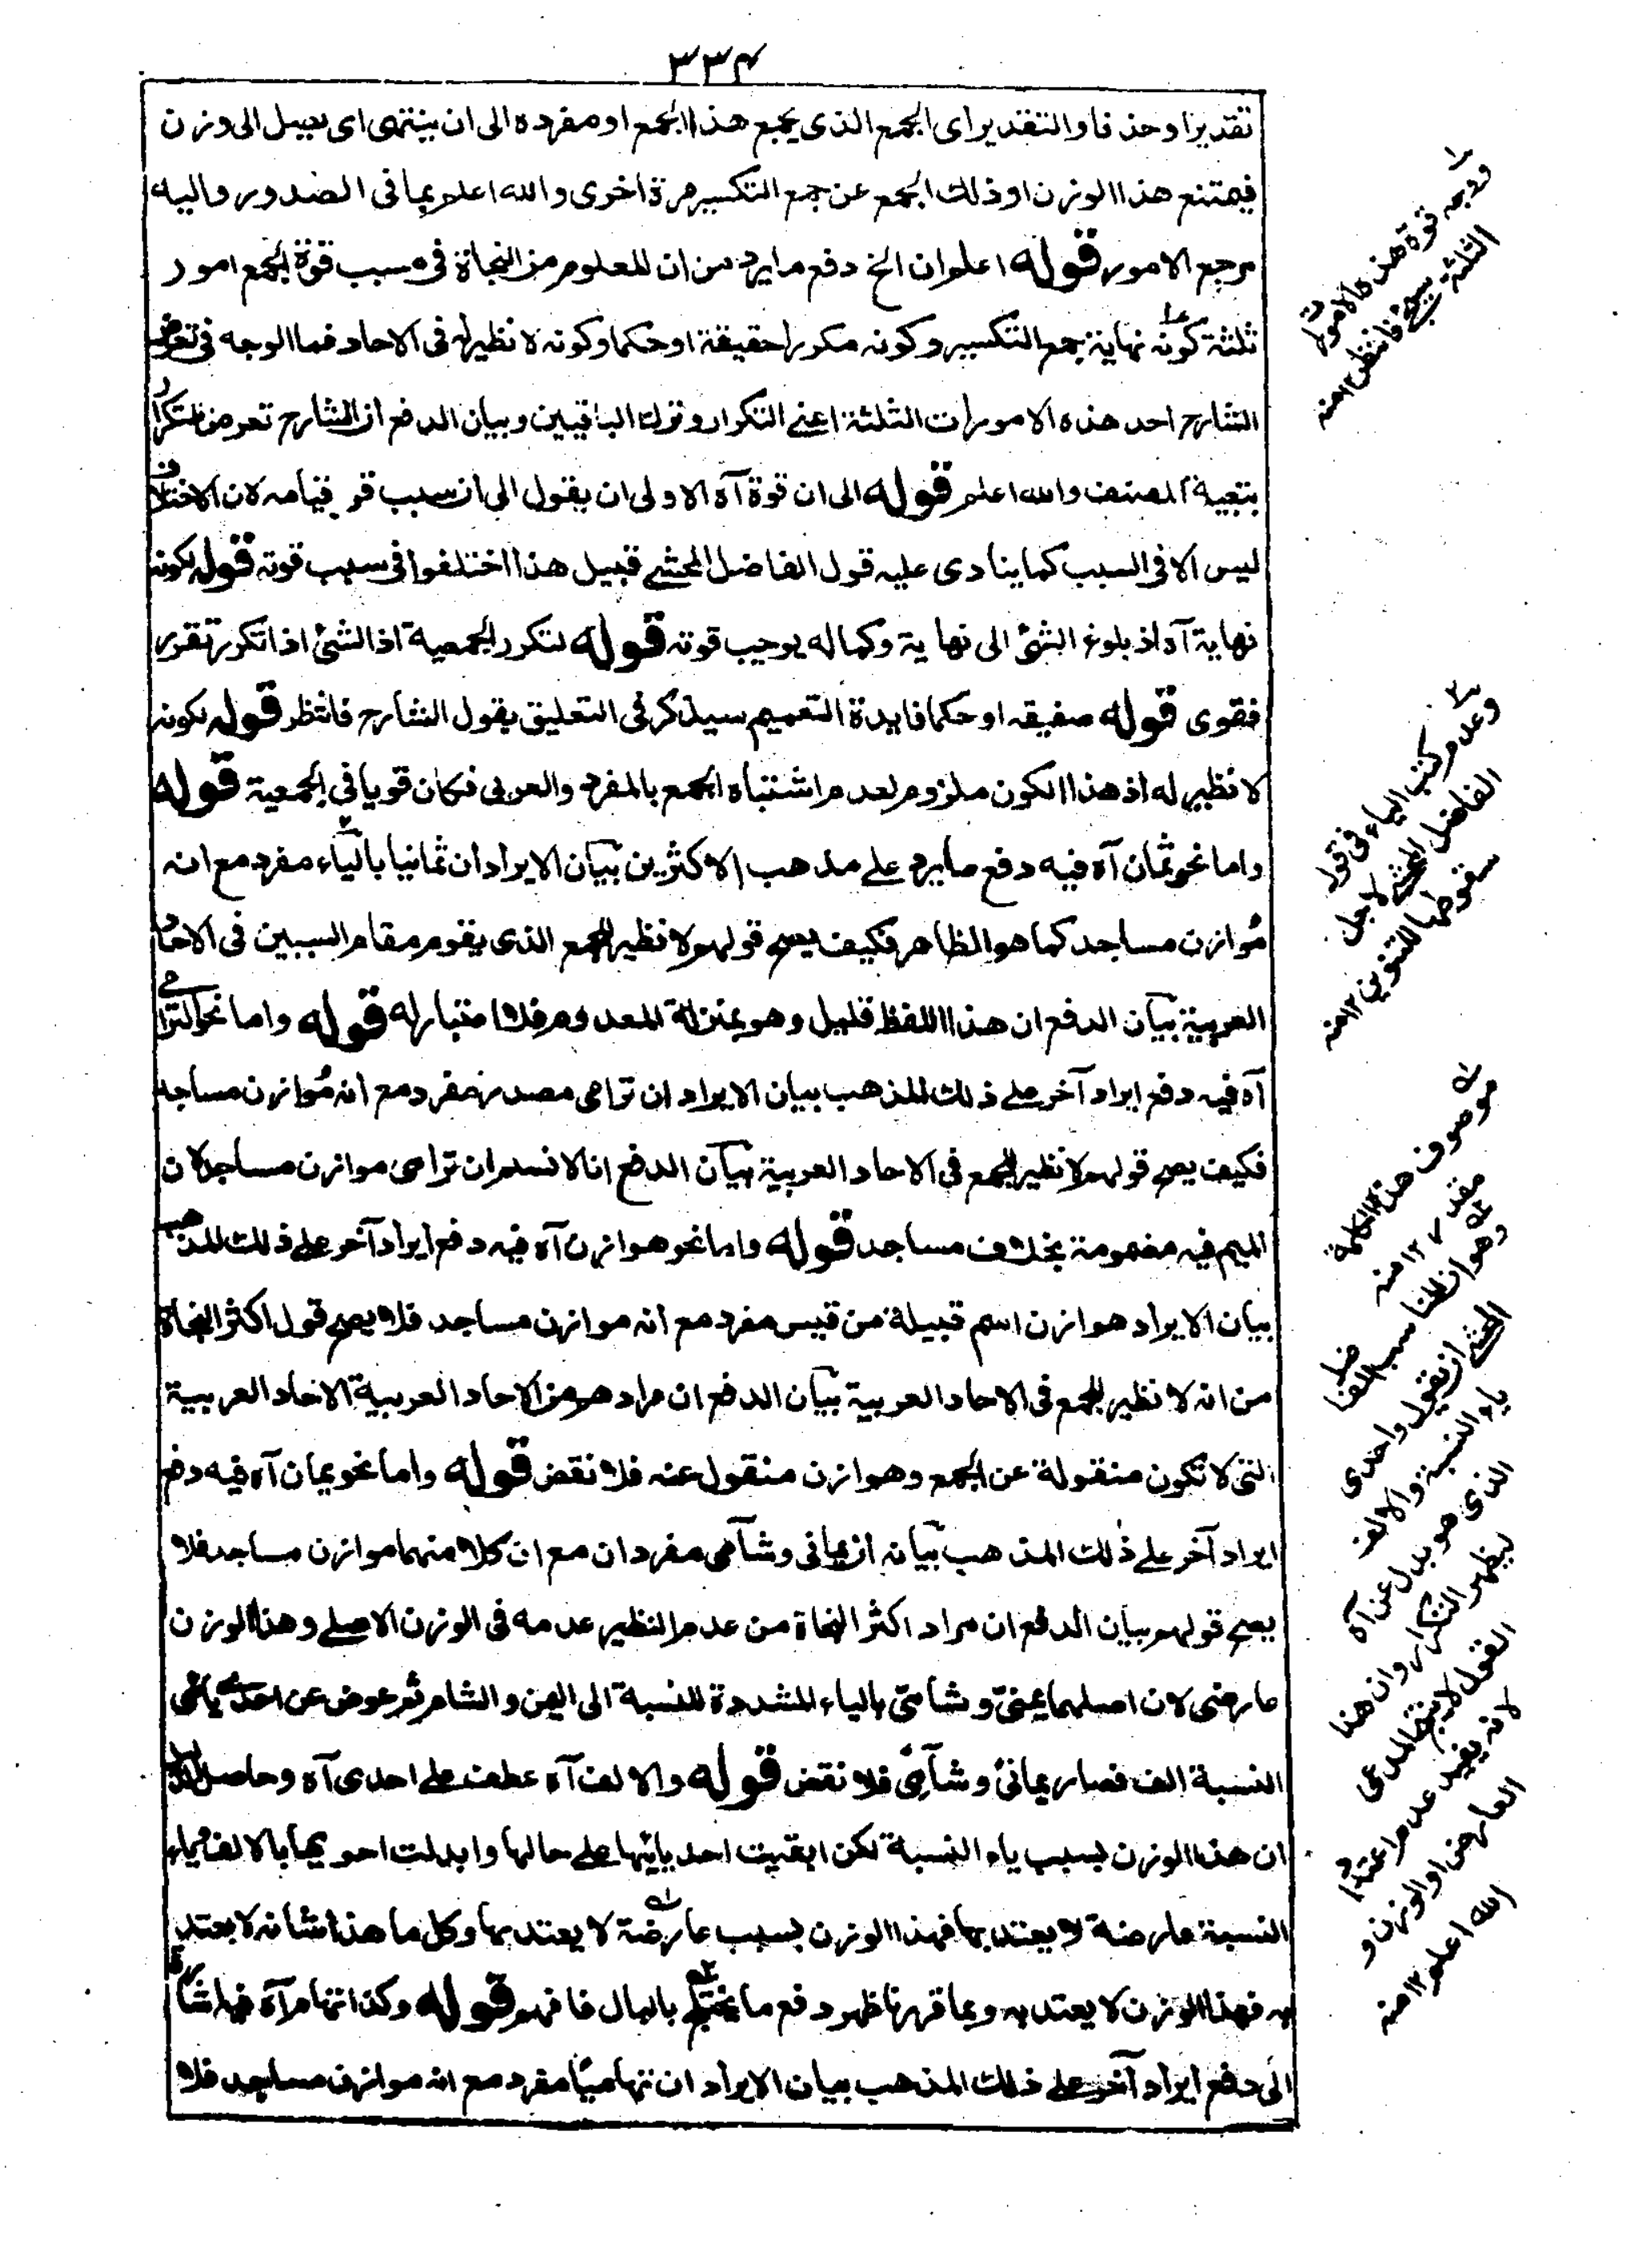 ٣٣٤
تقديرا وحذفا والتقدير اى الجمع الذى يجمع هذا الجمع او مفرده الى ان ينتهى اى يبيل الى وزن
فيمتنع هذا الوزن او ذلك الجمع عن جمع التكسير مرة اخرى والله اعلم بما فى الصدور واليه
مرجع الامور قوله اعلم ان الخ دفع ما يرد من ان المعلوم من النحاة فى سبب قوة الجمع امور
ثلثة كونه نهاية جمع التكسير وكونه مكررا حقيقة او حكما وكونه لا نظير له فى الاحاد فما الوجه فى تعرض
الشارح احد هذه الامورات الثلثة اعنى التكرار وترك الباقيين وبيان الدفع ان الشارح تعرض للتكرار
بتعية المصنف والله اعلم قوله الى ان قوة آه الاولى ان يقول الى ان سبب قو قيامه لان الاختلاف
ليس الا فى السبب كما ينادى عليه قول الفاضل المحشى قبيل هذا اختلفوا فى سبب قوته قوله لكونه
نهاية آه اذ بلوغ الشئ الى نهاية وكماله يوجب قوته قوله لتكرر الجمعية اذ الشئ اذا تكرر تقرر
فقوى قوله حقيقه او حكما فايدة التعميم سيذكر فى التعليق يقول الشارح فانتظر قوله لكونه
لا نظير له اذ هذا الكون ملزوم لعدم اشتباه الجمع بالمفرد والعربى فكان قويا فى الجمعية قوله
واما نحو ثمان آه فيه دفع ما يرد على مذهب الاكثرين بيان الايراد ان ثمانيا بالياء مفرد مع انه
موازن مساجد كما هو الظاهر فكيف يصح قولهم لا نظير للجمع الذى يقوم مقام السببين فى الاحاد
العربية بيان الدفع ان هذا اللفظ قليل وهو بمنزلة المعدوم فلا اعتبار له قوله واما نحو الترامى
آه فيه دفع ايراد آخر على ذلك المذهب بيان الايراد ان ترامى مصدر مفرد مع انه موازن مساجد
فكيف يصح قولهم لا نظير للجمع فى الاحاد العربية بيان الدفع انا لا نسلم ان ترامى موازن مساجد لان
الميم فيه مضمومة بخلاف مساجد قوله واما نحو هوازن آه فيه دفع ايراد آخر على ذلك المذهب
بيان الايراد هوازن اسم قبيلة من قيس مفرد مع انه موازن مساجد فلا يصح قول اكثر النحاة
من انه لا نظير للجمع فى الاحاد العربية بيان الدفع ان مرادهم من الاحاد العربية الاحاد العربية
التى لا تكون منقولة عن الجمع وهوازن منقول عنه فلا نقض قوله واما نحو يمان آه فيه دفع
ايراد آخر على ذلك المذهب بيانه ان يمانى وشآمى مفردان مع ان كلا منهما موازن مساجد فلا
يصح قولهم بيان الدفع ان مراد اكثر النحاة من عدم النظير عدمه فى الوزن الاصلى وهذا الوزن
عارضى لان اصلهما يمنىّ وشامىّ بالياء المشددة للنسبة الى اليمن والشام ثم عوض عن احدى يائى
النسبة الف فصار يمانى وشآمى فلا نقض قوله والالف آه عطف على احدى آه وحاصل
ان هذا الوزن بسبب ياء النسبة لكن ابقيت احد يائيها على حالها وابدلت احويهما بالالف وياء
النسبة عارضة لا يعتد بها فهذا الوزن بسبب عارضة لا يعتد بها وكل ما هذا شانه لا يعتد
به فهذا الوزن لا يعتد به وبما قررنا ظهر دفع ما يختلج بالبال فافهم قوله وكذا تهام آه فيه اشارة
الى دفع ايراد آخر على ذلك المذهب بيان الايراد ان تهاميا مفرد مع انه موازن مساجد فلا
ووجه قوة هذه الامورات
الثلثة سيجئ فانتظر ١٢ منه
وعدم كتب الياء فى قول
الفاضل المحشى لاجل
سقوطها للتنوين ١٢ منه
موصوف هذا الكلمة
مقدر ١٢ منه
وهو ان المناسب الفاضل
المحشى ان يقول واحدى
ياء النسبة والالف
الذى هو بدل عن آه
ليظهر التكرار وان هذا
القول لا ينتج المدعى
لانه يفيد عدم اعتداد
العارض او الوزن و
الله اعلم ١٢ منه